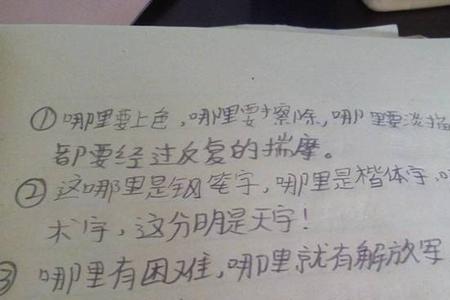 ①哪里要上色,哪里要擦除,哪里要淡描
都要经过反复的揣摩。
②这哪里是钢笔字,哪里是楷体字,
术字,这分明是天字!
③哪里有困难,哪里就有解放军